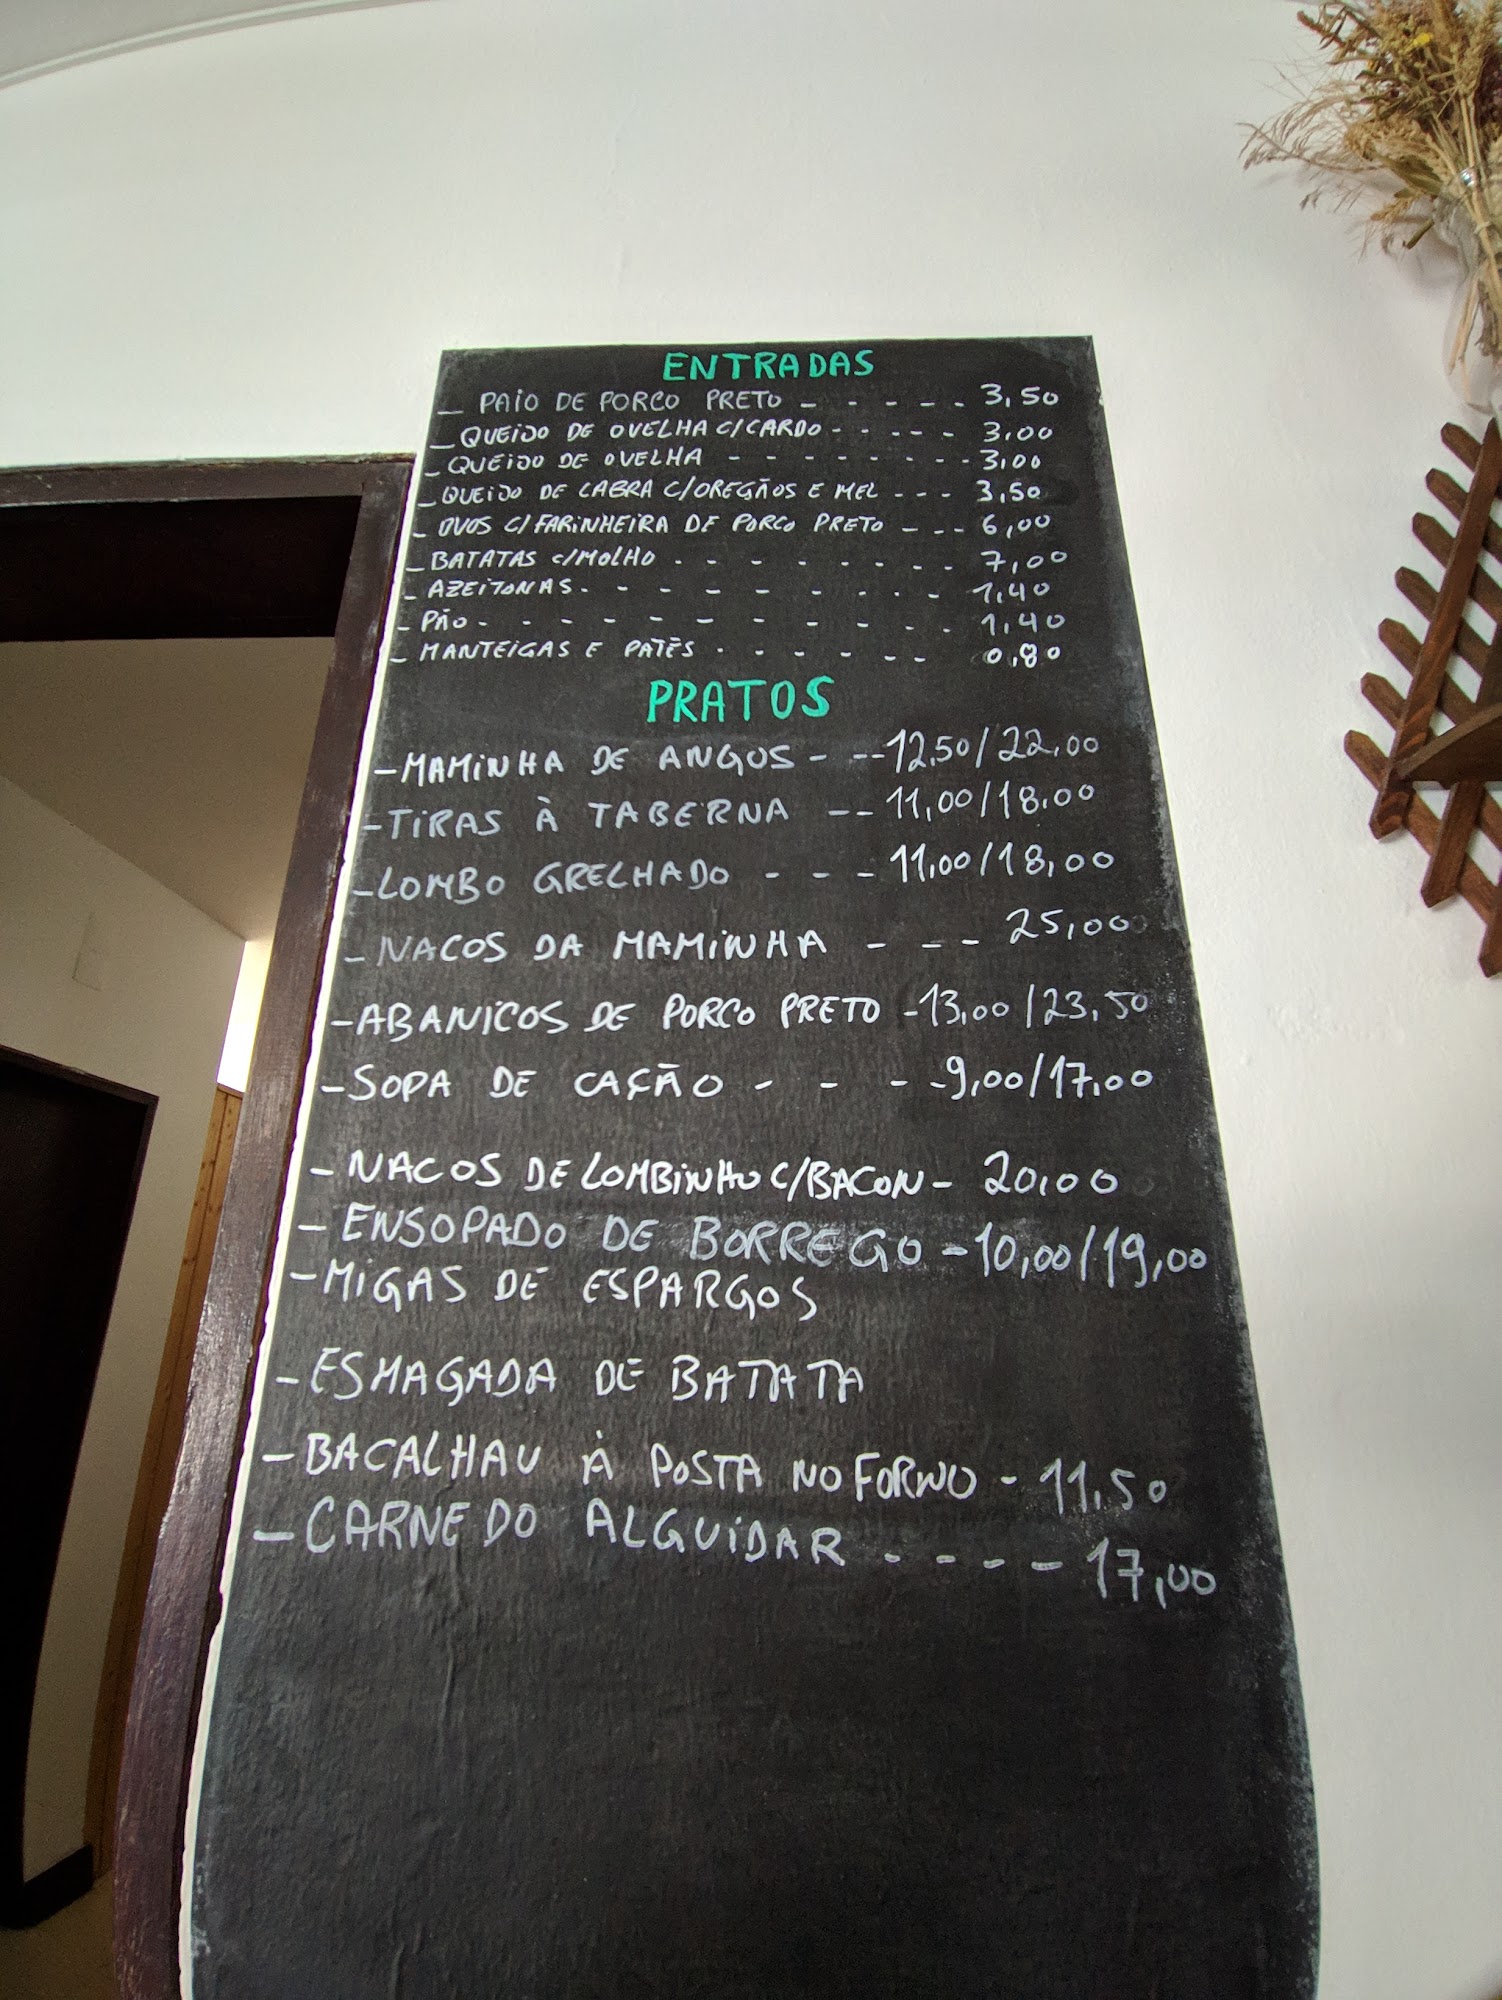 ENTRADAS
- PAIO DE PORCO PRETO - - - - - 3,50
- QUEIJO DE OVELHA C/CARDO - - - - - 3,00
- QUEIJO DE OVELHA - - - - - - - - 3,00
- QUEIJO DE CABRA C/OREGÃOS E MEL - - - 3,50
- OVOS C/FARINHEIRA DE PORCO PRETO - - - 6,00
- BATATAS C/MOLHO - - - - - - - - 7,00
- AZEITONAS - - - - - - - - - 1,40
- PÃO - - - - - - - - - - - 1,40
- MANTEIGAS E PATÊS - - - - - - 0,80
PRATOS
- MAMINHA DE ANGOS - - - 12,50/22,00
- TIRAS À TABERNA - - 11,00/18,00
- LOMBO GRELHADO - - - 11,00/18,00
- NACOS DA MAMINHA - - - 25,00
- ABANICOS DE PORCO PRETO - 13,00/23,50
- SOPA DE CAÇÃO - - - - 9,00/17,00
- NACOS DE LOMBINHO C/BACON - 20,00
- ENSOPADO DE BORREGO - 10,00/19,00
- MIGAS DE ESPARGOS
- ESMAGADA DE BATATA
- BACALHAU À POSTA NO FORNO - 11,50
- CARNE DO ALGUIDAR - - - - 17,00